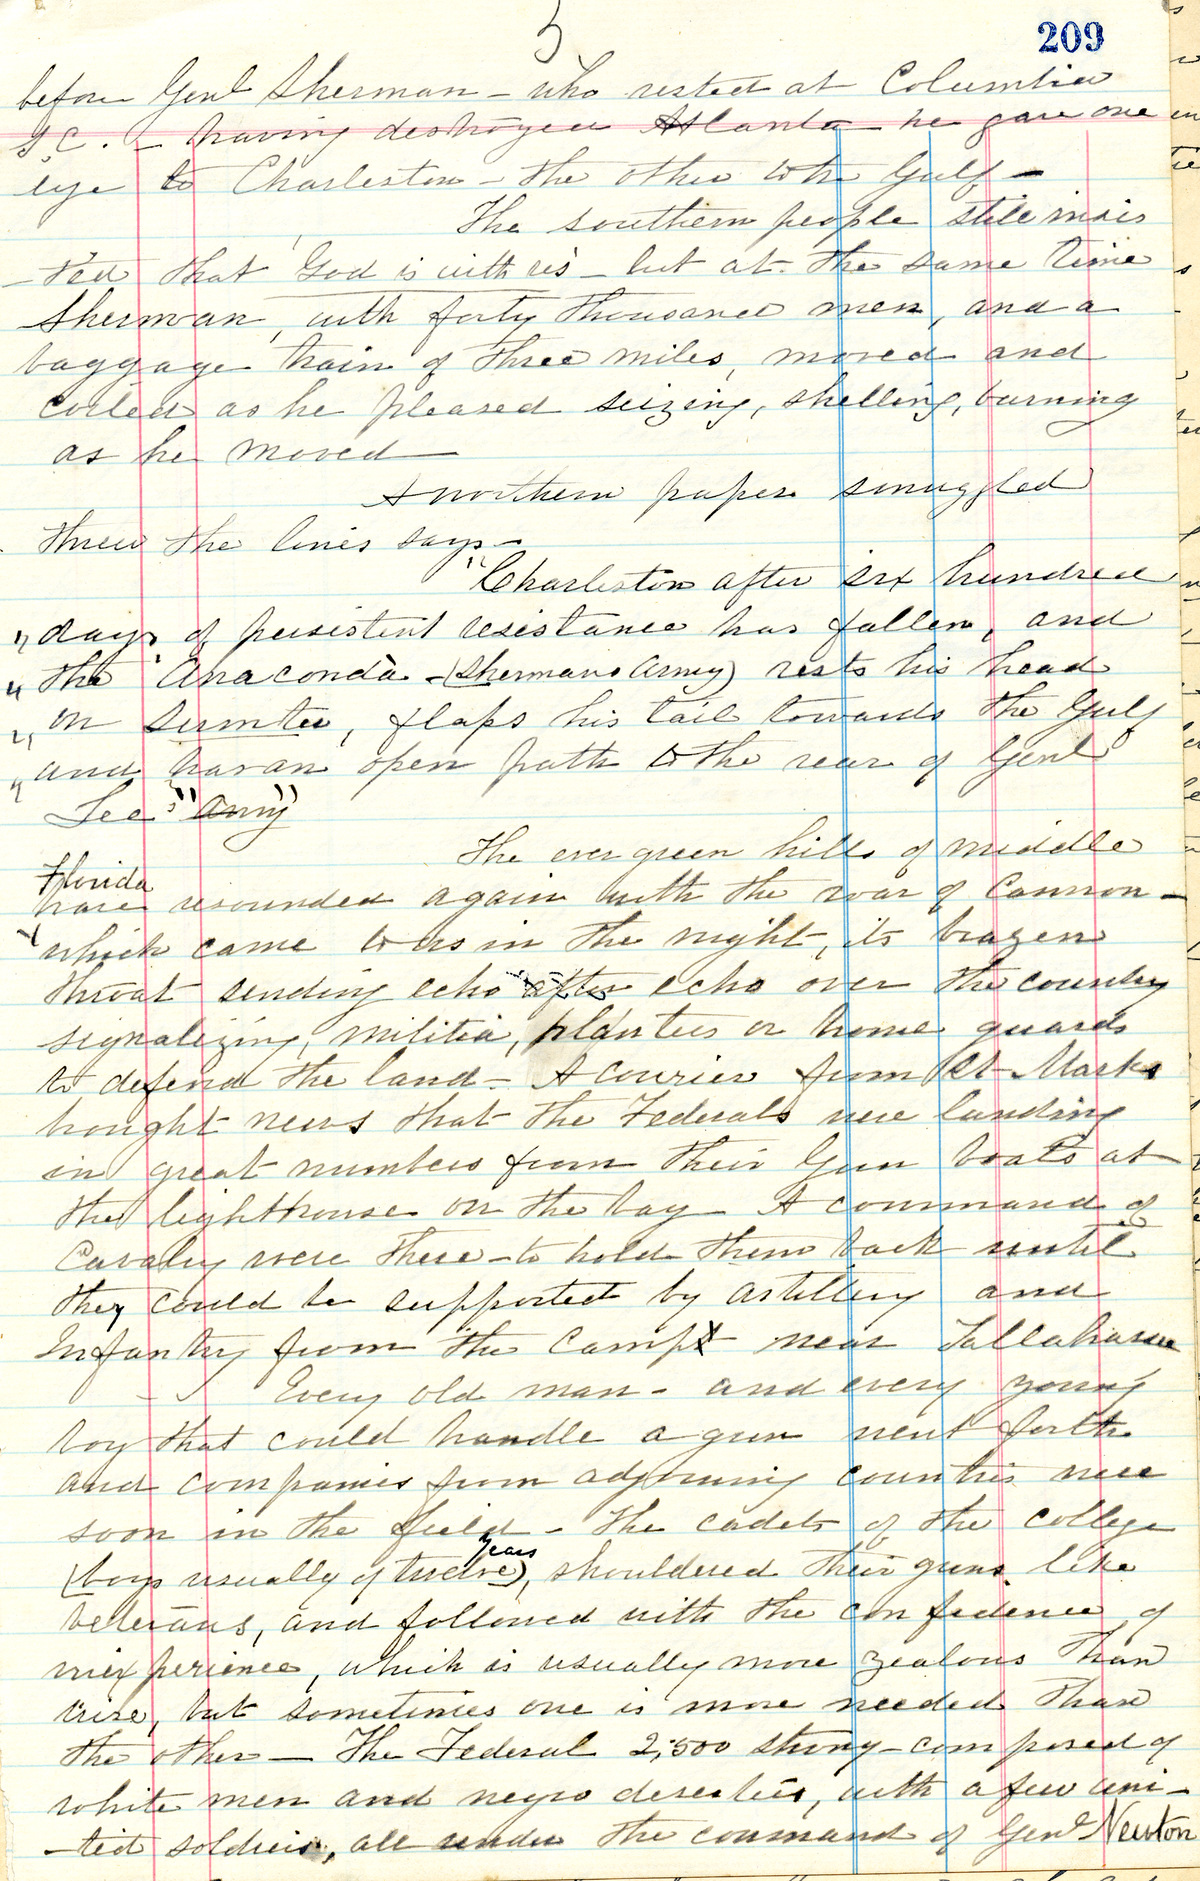 5
209
before Genl Sherman - who rested at Columbia
S.C. - having destroyed Atlanta he gave one
eye to Charleston - the other to the Gulf -
The southern people still insis
- ted that God is with us - but at the same time
Sherman, with forty thousand men, and a
baggage train of three miles, moved and
coiled as he pleased seizing, shelling, burning
as he moved
A northern paper smuggled
threw the lines says -
"Charleston after six hundred
" days of persistent resistance has fallen, and
" the Anaconda - (Shermans Army) rests his head
" on Sumter, flaps his tail towards the Gulf
" and has an open path to the rear of Genl
Lee's "Army"
The ever green hills of middle
Florida
have resounded again with the roar of Cannon -
which came to us in the night, its brazen
throat sending echo after echo over the country
signalizing, militia, planters or home guards
to defend the land - A courier from St Marks
brought news that the Federals were landing
in great numbers from their Gun boats at
the lighthouse on the bay - A command of
Cavalry were there - to hold them back until
they could be supported by artillery and
Infantry from the Camp near Tallahassee
Every old man - and every young
boy that could handle a gun went forth
and companies from adjoining counties were
soon in the field - The cadets of the college
years
(boys usually of twelve), shouldered their guns like
veterans, and followed with the confidence of
inexperience, which is usually more zealous than
wise, but sometimes one is more needed than
the other - The Federal 2,500 strong - composed of
white men and negro deserters, with a few uni -
- ted soldiers, all under the command of Genl Newton